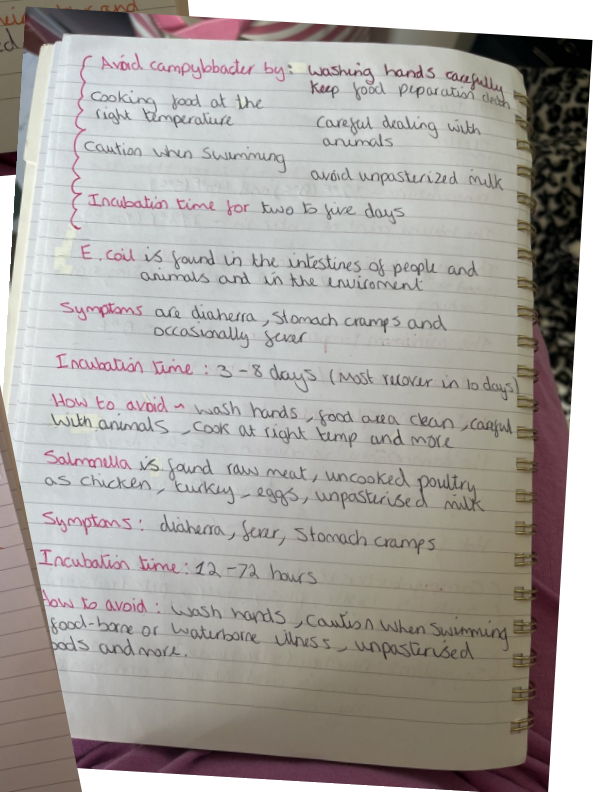 Avoid campylobacter by: washing hands carefully
Keep food peparation clean
Cooking food at the
right temperature
careful dealing with
animals
Caution when swimming
avoid unpasterized milk
Incubation time for two to five days
E. coil is found in the intestines of people and
animals and in the enviroment
Symptoms are diaherra, stomach cramps and
occasionally fever
Incubation time: 3-8 days (Most recover in 10 days)
How to avoid ~ wash hands, food area clean, careful
with animals, cook at right temp and more
Salmonella is found raw meat, uncooked poultry
as chicken, turkey, eggs, unpasterised milk
Symptoms: diaherra, fever, stomach cramps
Incubation time: 12-72 hours
How to avoid: wash hands, caution when swimming
food-borne or waterborne illness, unpasterised
oods and more.